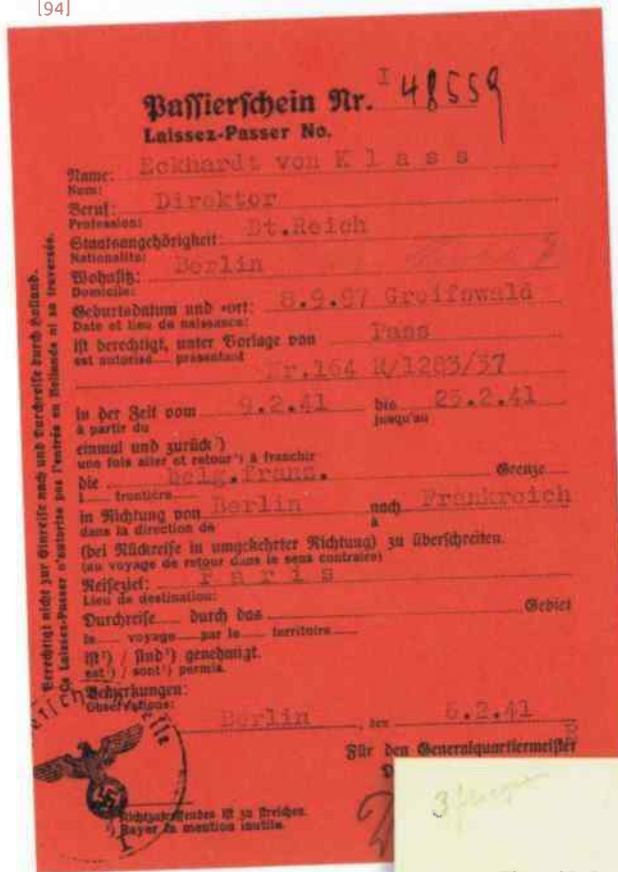 [94]
Passierschein Nr. I 48559
Laissez-Passer No.
Name: Eckhardt von K l a s s
Nom:
Beruf: Direktor
Profession:
Staatsangehörigkeit: Dt.Reich
Nationalité:
Wohnsitz: Berlin
Domicile:
Geburtsdatum und -ort: 8.9.97 Greifswald
Date et lieu de naissance:
ist berechtigt, unter Vorlage von Pass
est autorisé présentant
Nr.164 R/1283/37
in der Zeit vom 9.2.41 bis 23.2.41
à partir du jusqu'au
einmal und zurück¹)
une fois aller et retour¹) à franchir
die belg.franz. Grenze
l frontière
in Richtung von Berlin nach Frankreich
dans la direction de à
(bei Rückreise in umgekehrter Richtung) zu überschreiten.
(au voyage de retour dans le sens contraire)
Reiseziel: P a r i s
Lieu de destination:
Durchreise durch das Gebiet
le voyage par le territoire
ist¹) / sind¹) genehmigt.
est¹) / sont¹) permis.
Bemerkungen:
Observations:
Berlin, den 6.2.41
Für den Generalquartiermeister
Nichtzutreffendes ist zu streichen.
Rayer la mention inutile.
Berechtigt nicht zur Einreise nach und Durchreise durch Holland.
Ce Laissez-Passer n'autorise pas l'entrée en Hollande ni sa traversée.